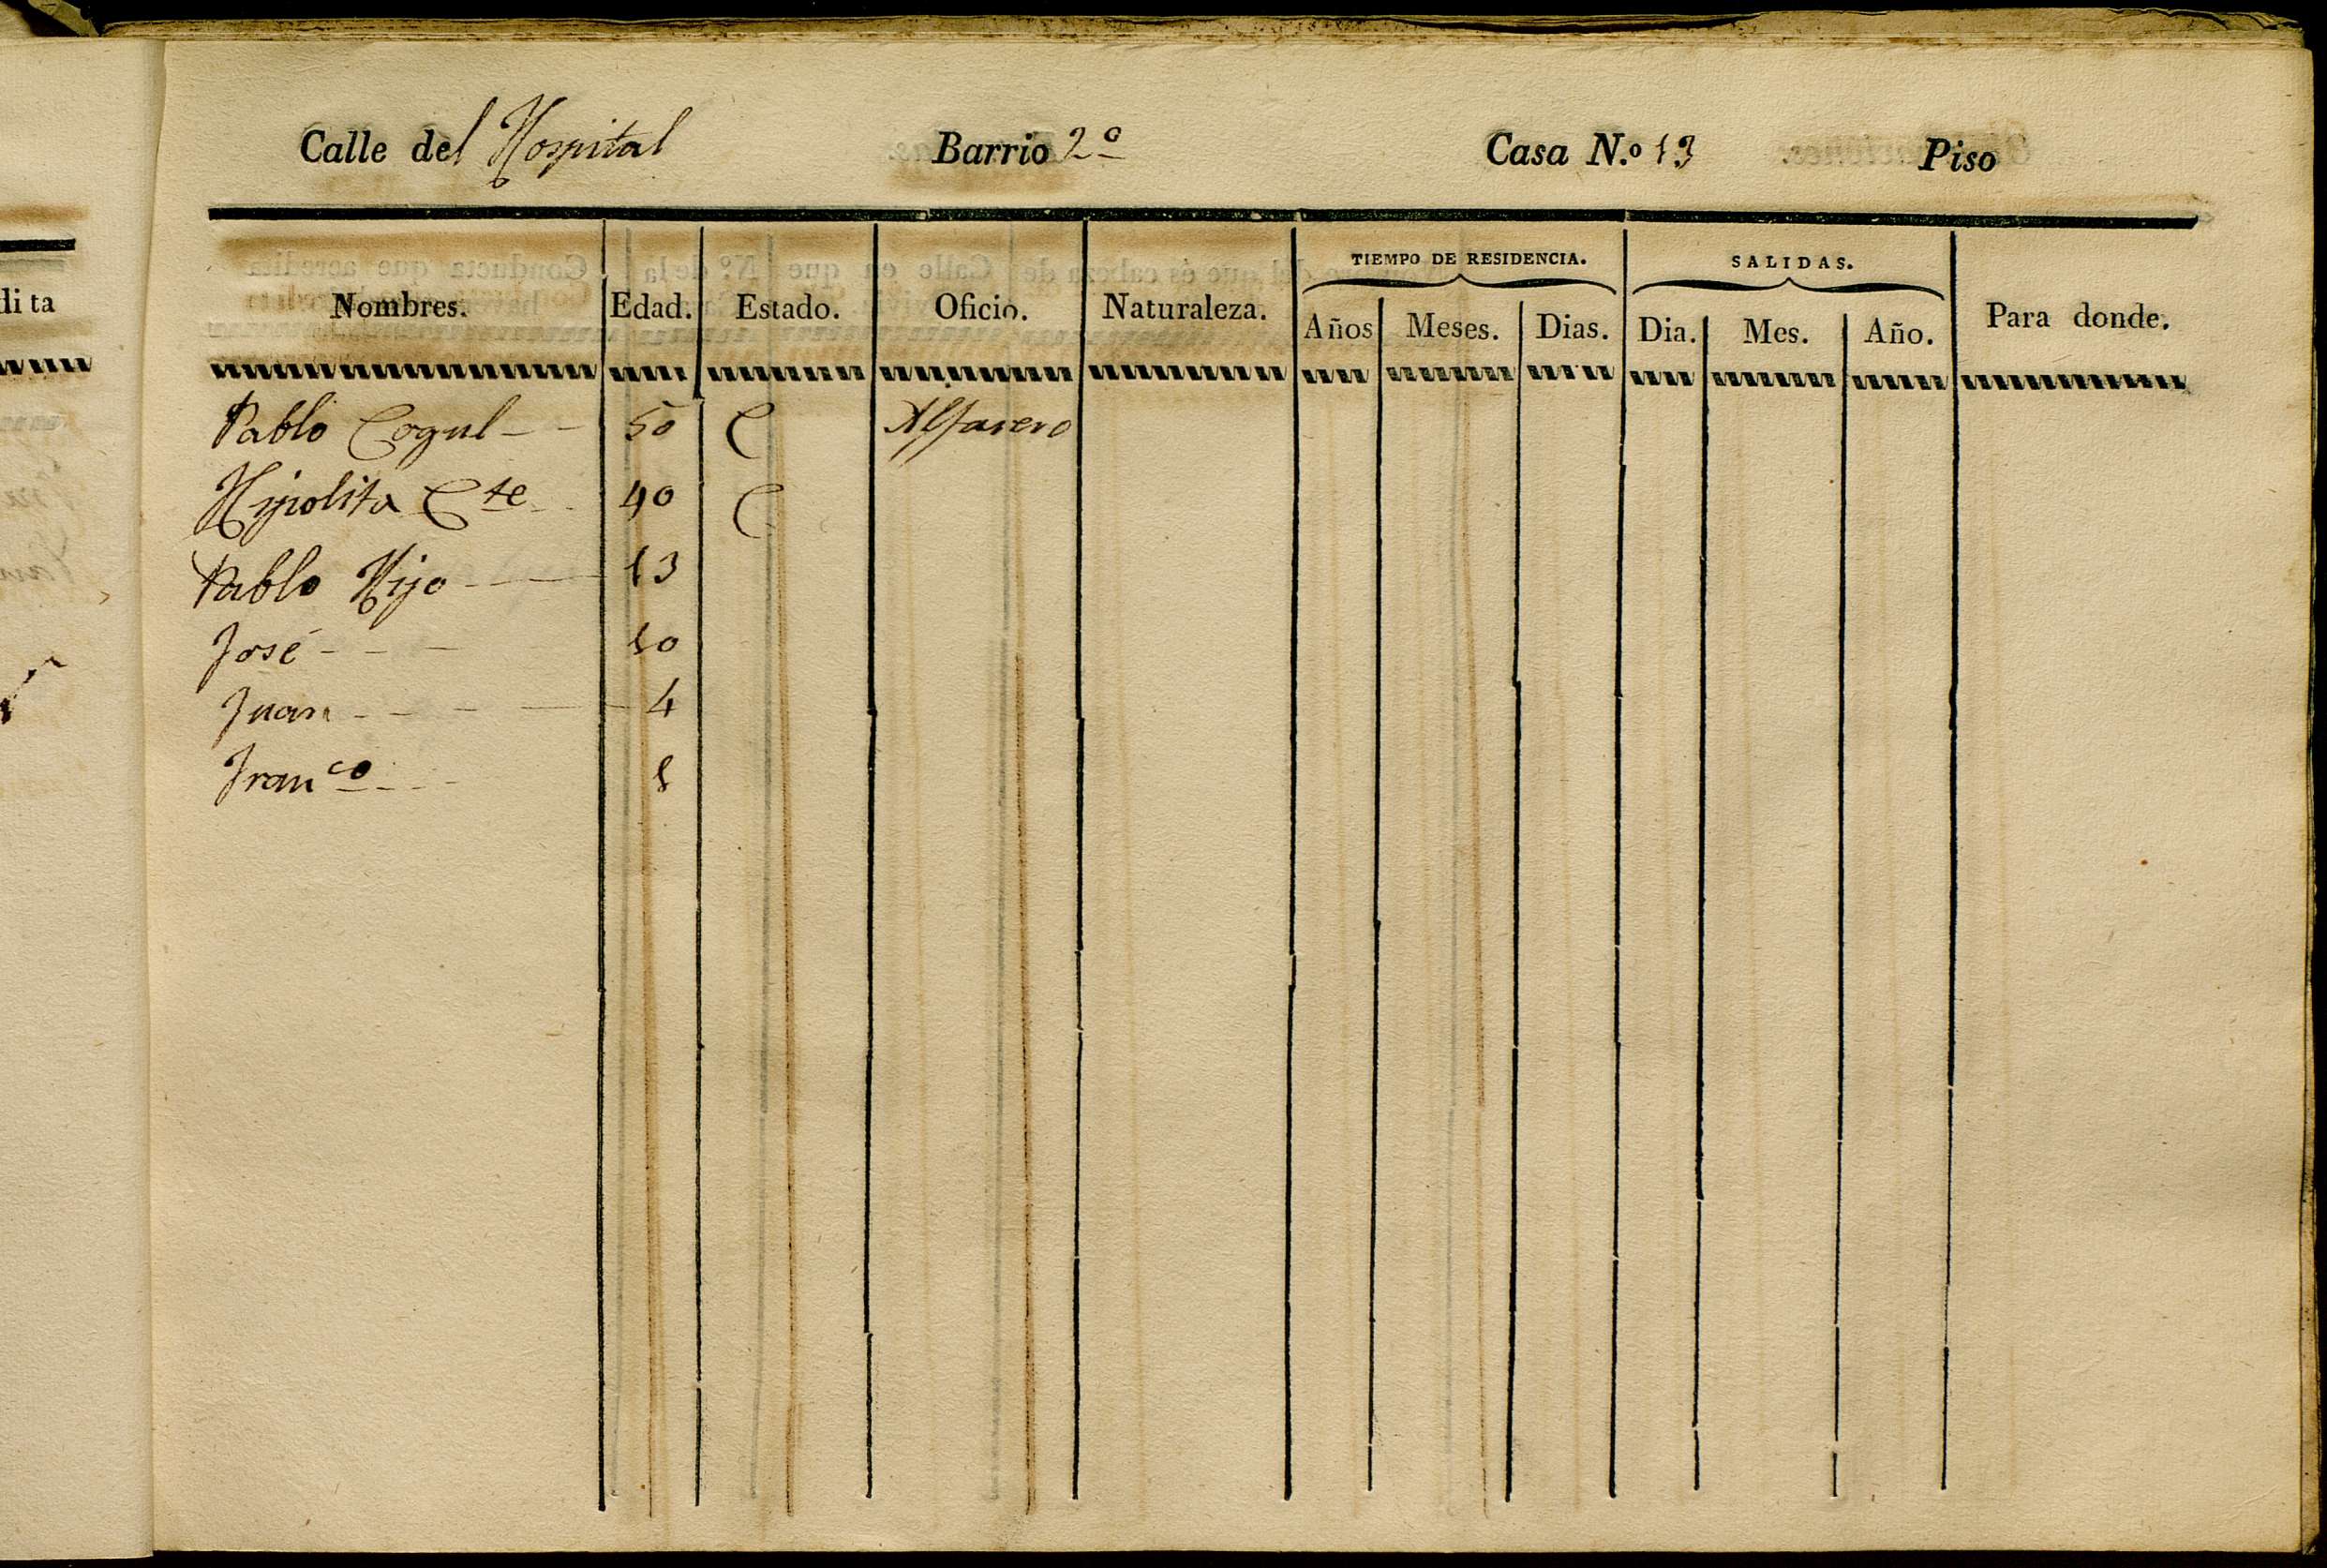 Calle del Hospital Barrio 2º Casa N.º 13 Piso
TIEMPO DE RESIDENCIA. SALIDAS.
Nombres. Edad. Estado. Oficio. Naturaleza. Años Meses. Dias. Dia. Mes. Año. Para donde.
Pablo Cogul 50 C Alfarero
Hipolita Cte 40 C
Pablo Hijo 13
José 10
Juan 4
Franco 1
dita